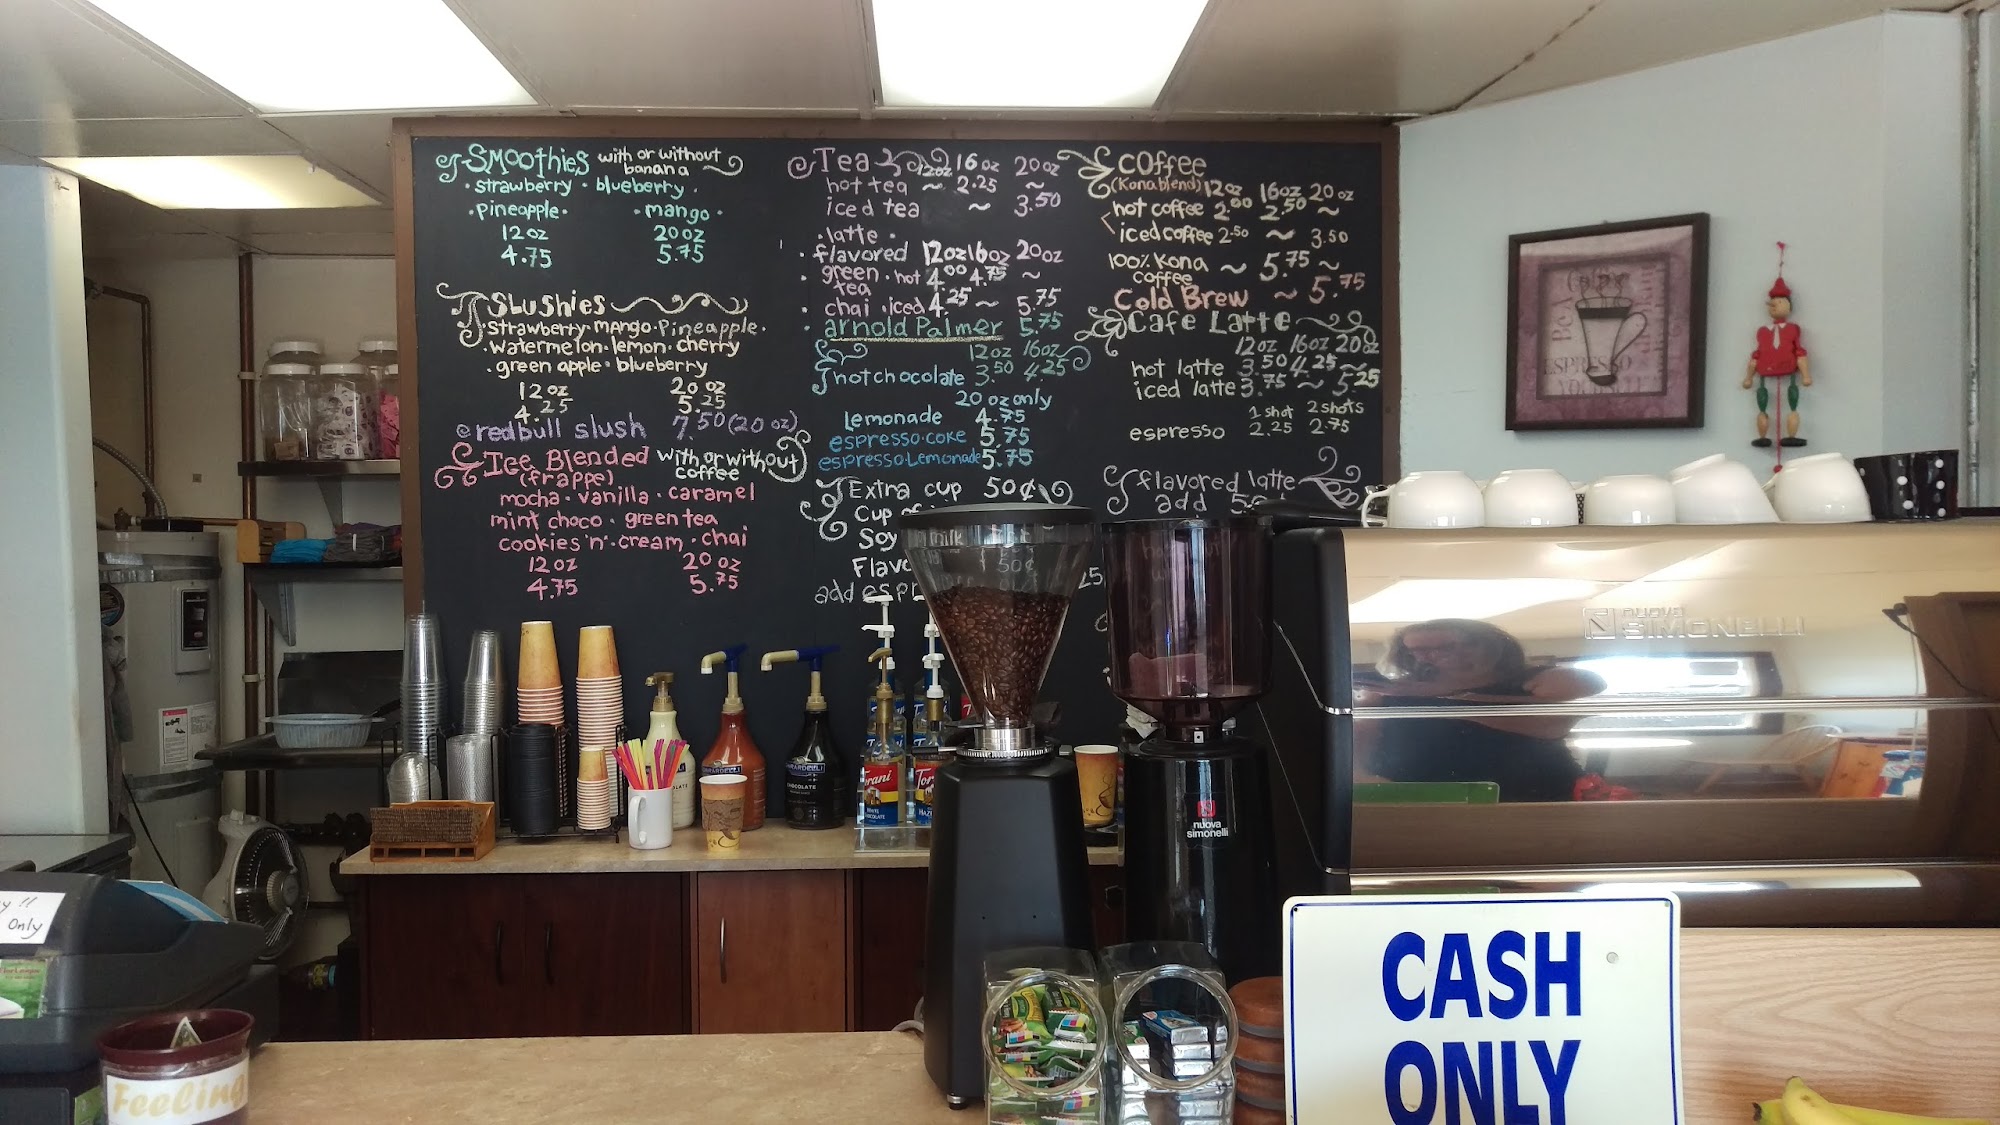 Smoothies with or without banana
· strawberry · blueberry ·
· pineapple · · mango ·
12oz 20oz
4.75 5.75
Slushies
· Strawberry · mango · Pineapple ·
· watermelon · lemon · cherry
· green apple · blueberry
12oz 20oz
4.25 5.25
redbull slush 7.50 (20oz)
Ice Blended with or without coffee
(frappe)
mocha · vanilla · caramel
mint choco · green tea
cookies 'n' cream · chai
12oz 20oz
4.75 5.75
Tea 12oz 16oz 20oz
hot tea ~ 2.25 ~
iced tea ~ 3.50
· latte ·
· flavored 12oz 16oz 20oz
· green tea · hot 4.00 4.75 ~
· chai · iced 4.25 ~ 5.75
· arnold Palmer 5.75
12oz 16oz
hot chocolate 3.50 4.25
20 oz only
Lemonade 4.75
espresso · coke 5.75
espresso · Lemonade 5.75
Extra cup 50¢
Cup of
Soy milk
50¢
add
Coffee
(Kona blend) 12oz 16oz 20oz
hot coffee 2.00 2.50 ~
iced coffee 2.50 ~ 3.50
100% Kona coffee ~ 5.75 ~
Cold Brew ~ 5.75
Cafe Latte
12oz 16oz 20oz
hot latte 3.50 4.25 ~
iced latte 3.75 ~ 5.25
1 shot 2 shots
espresso 2.25 2.75
flavored latte
add
ESPRESSO
nuova
SIMONELLI
nuova
simonelli
GHIRARDELLI
CHOCOLATE
Torani
Only
Feeling
CASH
ONLY